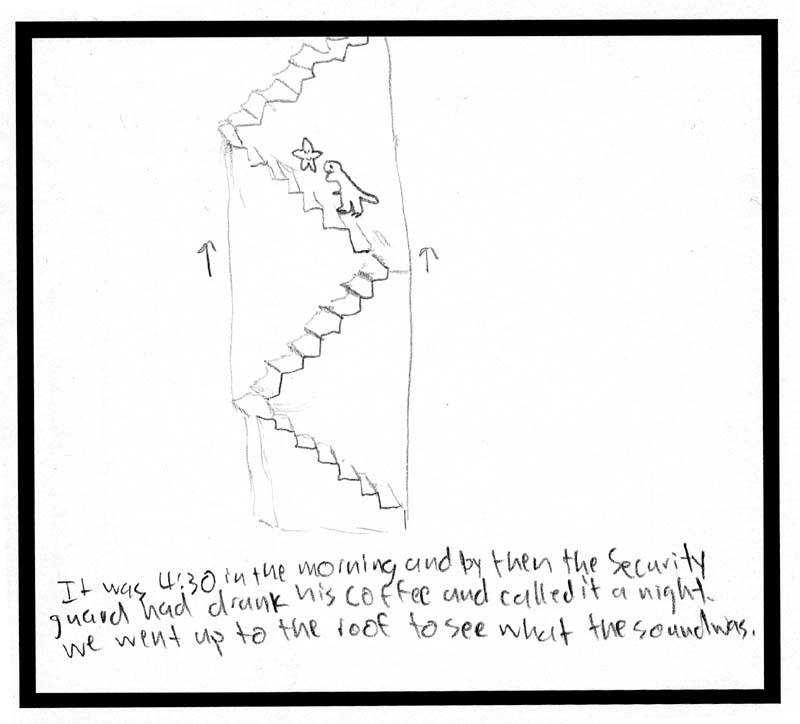 It was 4:30 in the morning and by then the Security
guard had drank his coffee and called it a night.
we went up to the roof to see what the sound was.